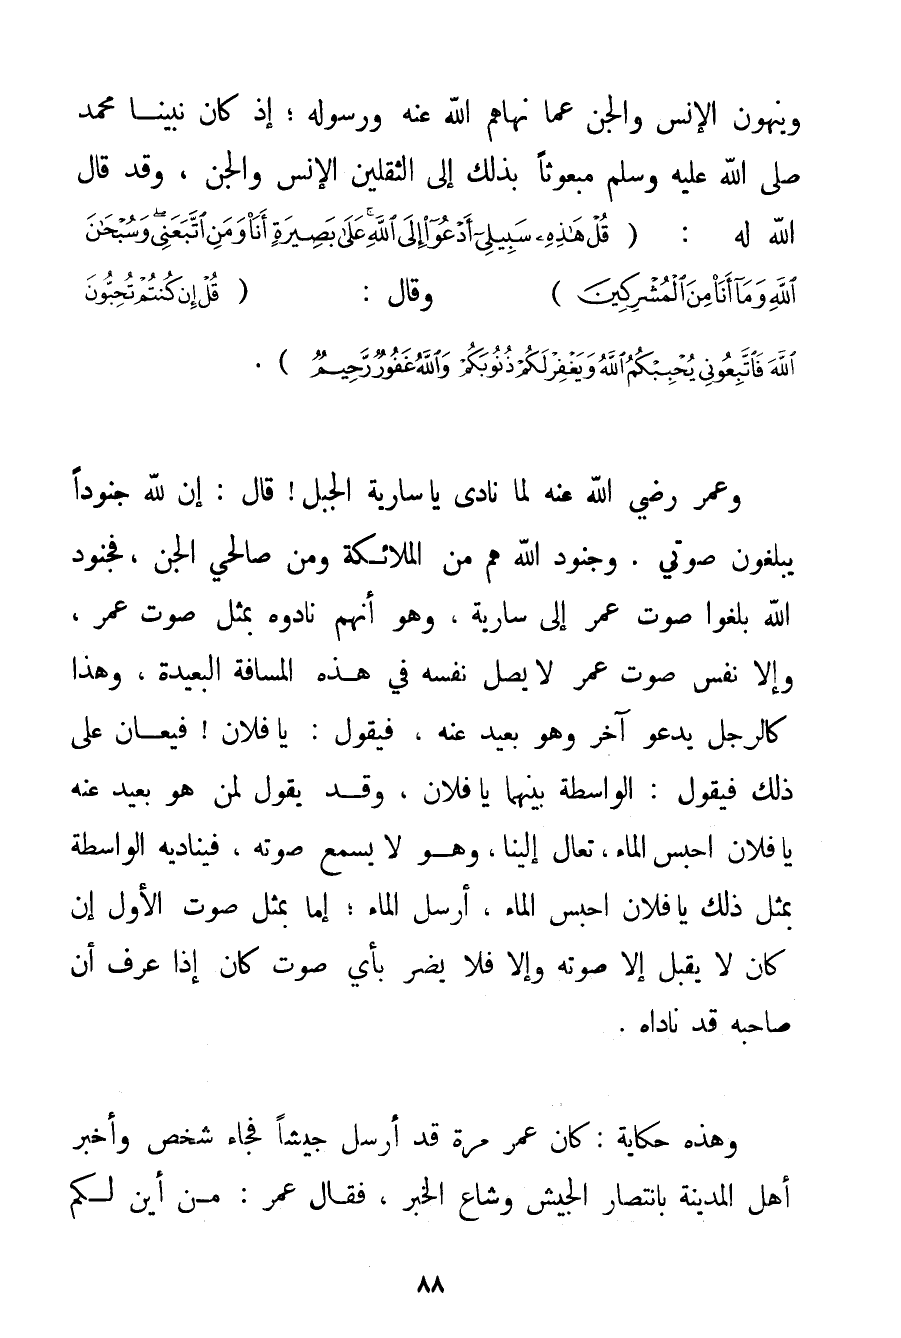 وينهون الإنس والجن عما نهاهم الله عنه ورسوله ؛ إذ كان نبينا محمد
صلى الله عليه وسلم مبعوثاً بذلك إلى الثقلين الإنس والجن ، وقد قال
الله له : ( قُلْ هَٰذِهِۦ سَبِيلِىٓ أَدْعُوٓا۟ إِلَى ٱللَّهِ ۚ عَلَىٰ بَصِيرَةٍ أَنَا۠ وَمَنِ ٱتَّبَعَنِى ۖ وَسُبْحَٰنَ
ٱللَّهِ وَمَآ أَنَا۠ مِنَ ٱلْمُشْرِكِينَ ) وقال : ( قُلْ إِن كُنتُمْ تُحِبُّونَ
ٱللَّهَ فَٱتَّبِعُونِى يُحْبِبْكُمُ ٱللَّهُ وَيَغْفِرْ لَكُمْ ذُنُوبَكُمْ وَٱللَّهُ غَفُورٌ رَّحِيمٌ ) .
وعمر رضي الله عنه لما نادى يا سارية الجبل ! قال : إن لله جنوداً
يبلغون صوتي . وجنود الله هم من الملائكة ومن صالحي الجن ، فجنود
الله بلغوا صوت عمر إلى سارية ، وهو أنهم نادوه بمثل صوت عمر ،
وإلا نفس صوت عمر لا يصل نفسه في هذه المسافة البعيدة ، وهذا
كالرجل يدعو آخر وهو بعيد عنه ، فيقول : يا فلان ! فيعان على
ذلك فيقول : الواسطة بينهما يا فلان ، وقد يقول لمن هو بعيد عنه
يا فلان احبس الماء ، تعال إلينا ، وهو لا يسمع صوته ، فيناديه الواسطة
بمثل ذلك يا فلان احبس الماء ، أرسل الماء ؛ إما بمثل صوت الأول إن
كان لا يقبل إلا صوته وإلا فلا يضر بأي صوت كان إذا عرف أن
صاحبه قد ناداه .
وهذه حكاية : كان عمر مرة قد أرسل جيشاً فجاء شخص وأخبر
أهل المدينة بانتصار الجيش وشاع الخبر ، فقال عمر : من أين لكم
٨٨